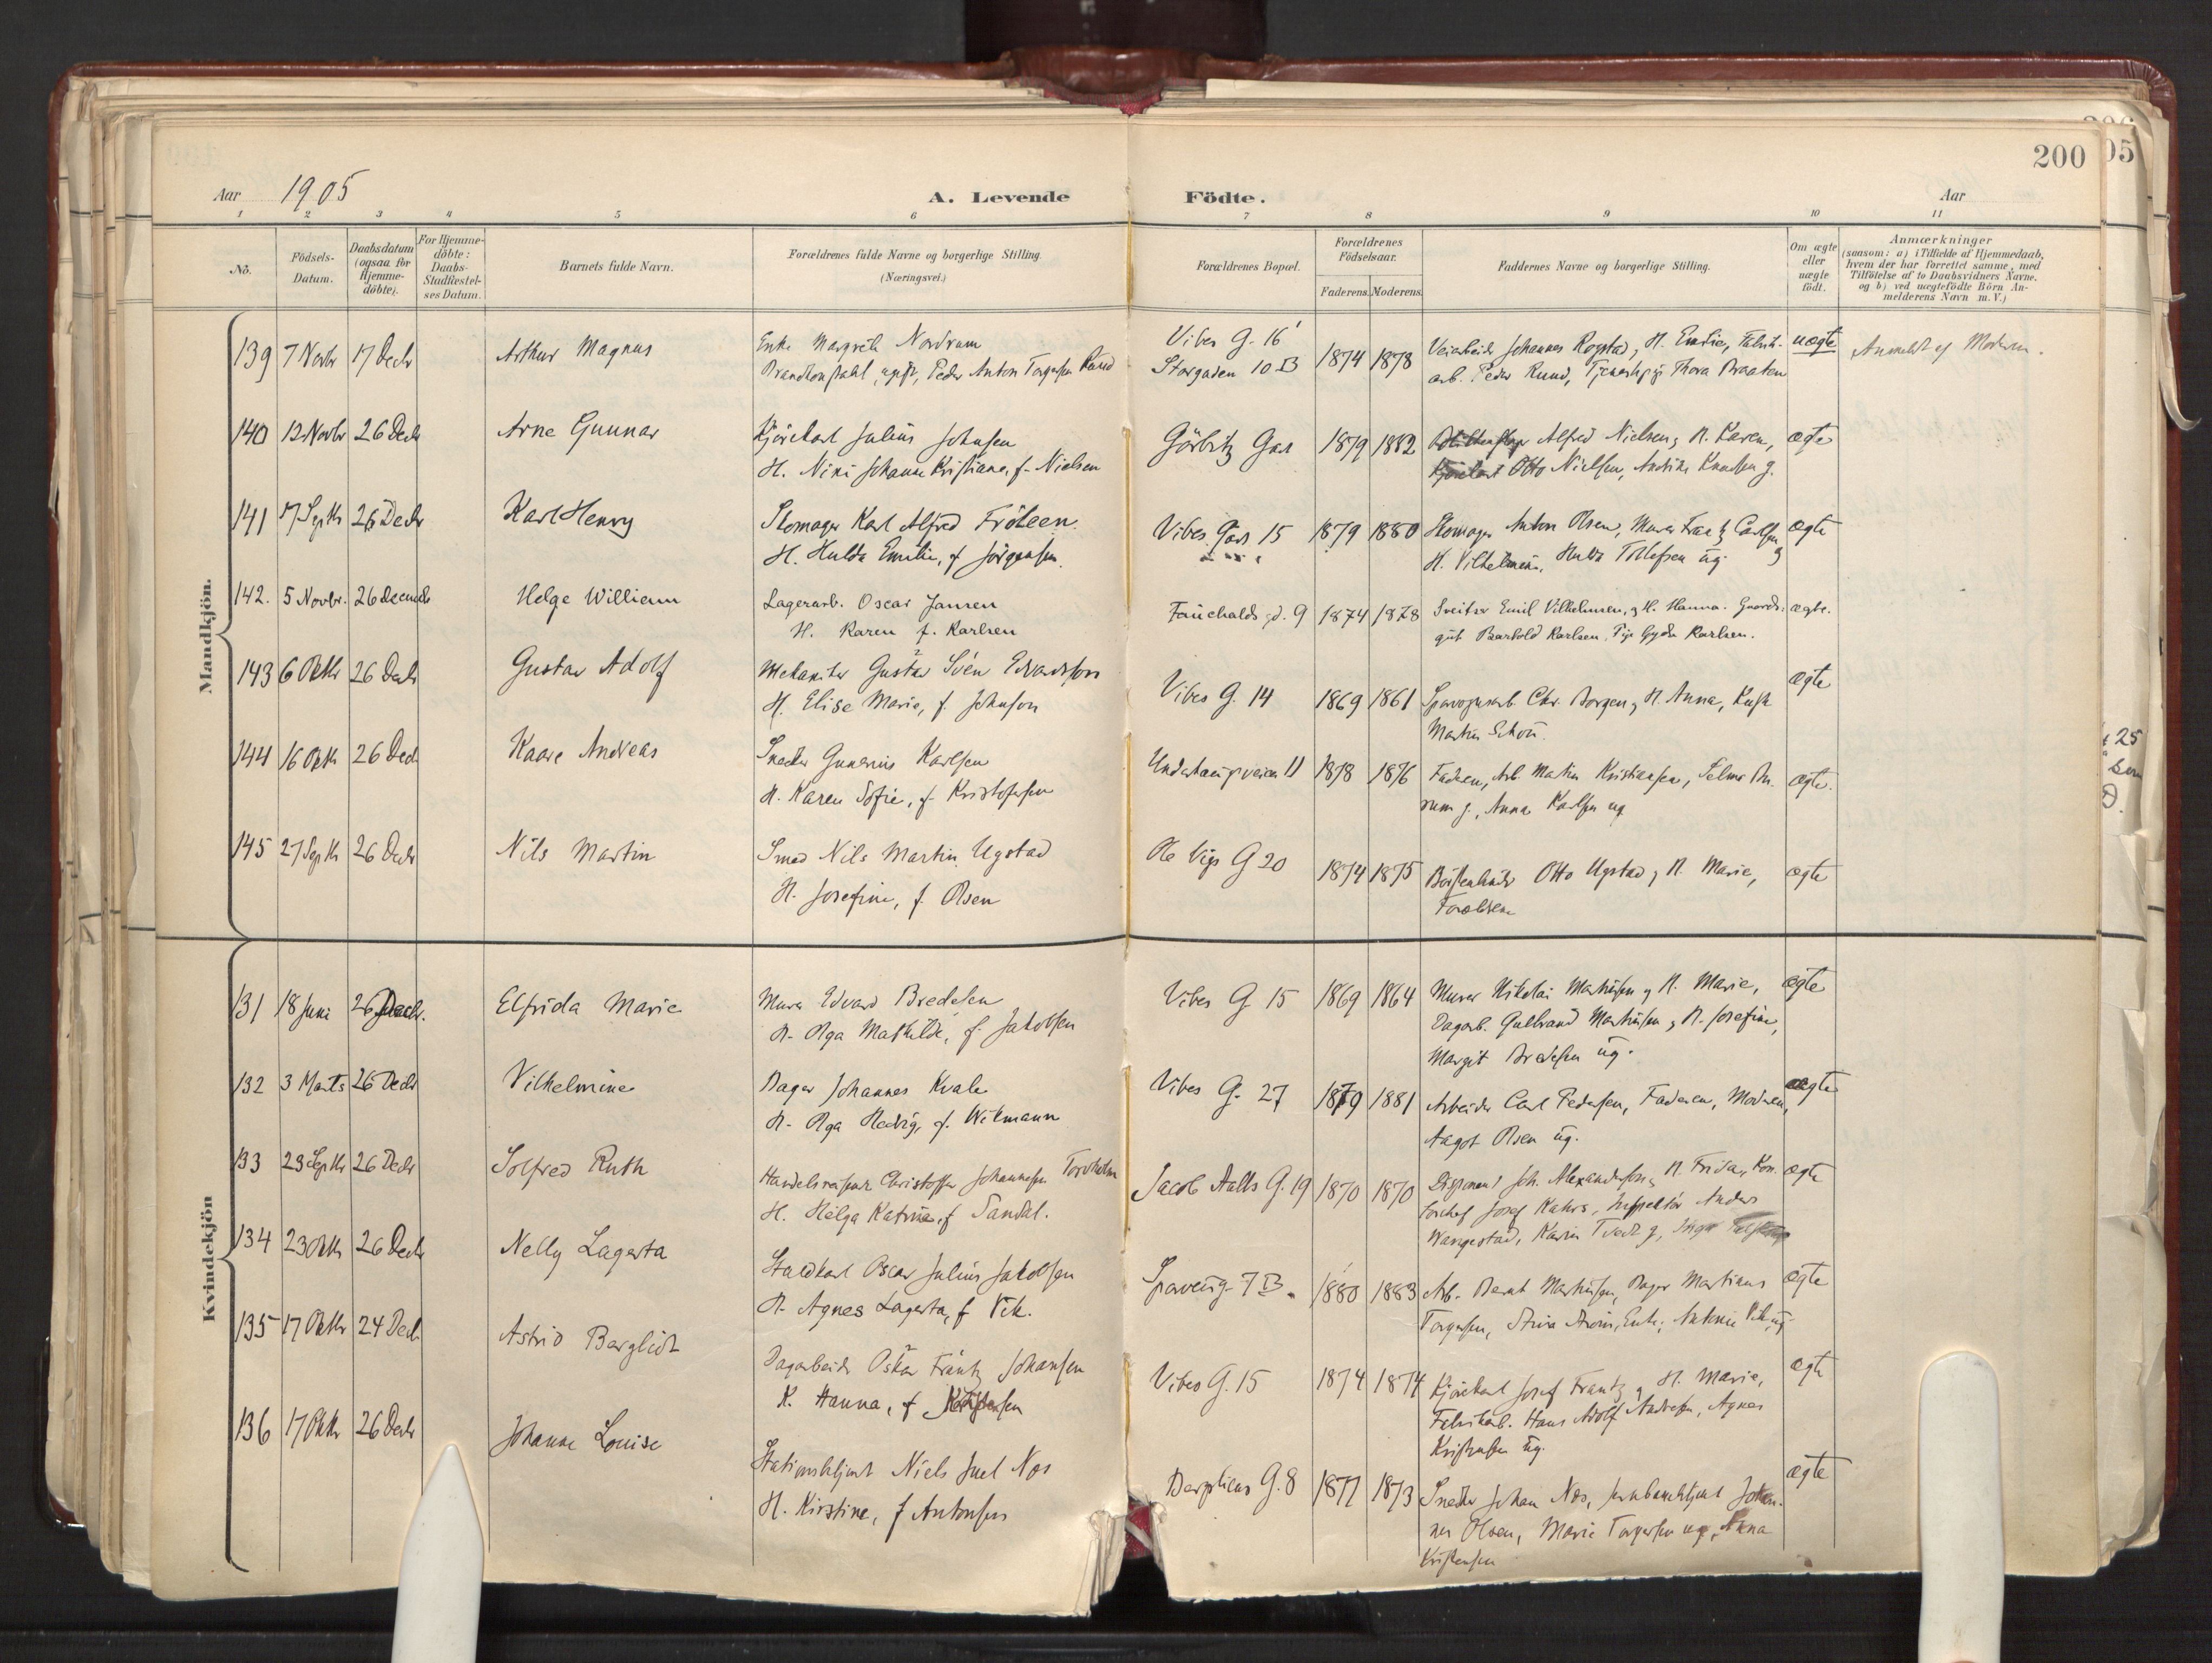 200
05
Aar 1905
A. Levende
Födte.
Aar
1 2 3 4 5 6 7 8 9 10 11
Nö.
Födsels-
Datum.
Daabsdatum
(ogsaa for
Hjemme-
döbte).
For Hjemme-
döbte:
Daabs-
Stadfæstel-
ses Datum.
Barnets fulde Navn.
Forældrenes fulde Navne og borgerlige Stilling.
(Næringsvei.)
Forældrenes Bopæl.
Forældrenes
Födselsaar.
Faderens.
Moderens.
Faddernes Navne og borgerlige Stilling.
Om ægte
eller
uægte
født.
Anmærkninger
(saasom: a) i Tilfælde af Hjemmedaab,
hvem der har forrettet samme, med
Tilföielse af to Daabsvidners Navne.
og b) ved uægtefödte Börn An-
melderens Navn m. V.)
Mandkjön.
139 7 Novbr 17 Decbr Arthur Magnus
Enke Margrete Nordrum
ugift, Peder Anton Torgersen Rund
Vibes G. 16
Storgaden 10 B
1874 1878
Johannes Rogstad, H. Emilie, Fabrik-
arb. Peder Rund, Thora Braaten
uægte
Anmeldt af Moderen.
140 12 Novbr 26 Decbr Arne Gunnar
Kjörekarl Julius Johnsen
H. Nini Johanne Kristiane, f. Nielsen
Görbitz Gad
1879 1882
Alfred Nielsen, H. Karen,
Kjörekarl Otto Nielsen, Knudsen g.
ægte
141 17 Septbr 26 Decbr Karl Henry
Skomager Karl Alfred Fröleen.
H. Hulda Emilie, f Jörgensen.
Vibes Gad 15
1879 1880
Skomager Anton Olsen, Murer Frantz Carlsen
H. Vilhelmine, Hulda Tollefsen ug.
ægte
142. 5 Novbr. 26 decemb Helge William
Lagerarb. Oscar Jansen
H. Karen f. Karlsen
Fauchalds gd. 9
1874 1878
Sveitser Emil Vilhelmsen, g H. Hanna. Gaards-
gut Karlsen, Pige Gyda Karlsen.
ægte.
143 6 Oktbr 26 Decbr Gustav Adolf
Mekaniker Gustav Svén Edvardsson
H. Elise Marie, f. Johnson
Vibes G. 14
1869 1861
Chr. Borgen, H. Anna, Kusk
Martin Schou.
ægte
144 16 Oktbr 26 Dec Kaare Andreas
Snedker Gunerius Karlsen
H. Karen Sofie, f. Kristofersen
Underhaugsveien 11
1878 1876
Faderen, Arb. Martin Kristiansen, Selma
g., Anna Karlsen ug
ægte.
145 27 Septbr 26 Decbr Nils Martin
Smed Nils Martin Ugstad
H. Josefine, f. Olsen
Ole Vigs G 20
1874 1875
Börstenbinder Otto Ugstad, H. Marie,
Forældrene
ægte
Kvindekjön
131 18 Juni 26 Decbr. Elfrida Marie
Murer Edvard Bredesen
H. Olga Mathilde, f. Jakobsen
Vibes G 15
1869 1864
Murer Nikolai Mathisen g H. Marie,
Dagarb. Gulbrand Mathisen, H. Josefine,
Margit Bredesen ug.
ægte
132 3 Marts 26 Decbr Vilhelmine
Bager Johannes Kvale
H. Olga Hedvig, f. Wikmann
Vibes G. 27
1879 1881
Arbeider Carl Pedersen, Faderen, Moderen,
Aagot Olsen ug.
ægte
133 23 Septbr 26 Decbr Solfred Ruth
Handelsreisende Christoffer Johannesen Torsholm
H. Helga Katrine, f Sandal.
Jacob Aalls G. 19
1870 1870
Disponent Joh. Alexandersson, H. Frida, Kon-
torchef Josef Kahrs, Inspektör Anders
Wangestad, Karin Tvedt g, Inga
ægte
134 23 Oktbr 26 Decbr Nelly Lagerta
Staldkarl Oscar Julius Jakobsen
H. Agnes Lagerta, f Vik.
Sporveisg. 7 B.
1880 1883
Arb. Bernt Mathisen, Bager Martinus
Torgersen, Enke, Antonie Vik ug.
ægte
135 17 Oktbr 24 Decbr Astrid Bergliot
Dagarbeider Oskar Frantz Johansen
H. Hanna, f Kristensen
Vibes G. 15
1874 1874
Kjörekarl Josef Frantz g H. Marie,
Fabrikarb. Hans Adolf Andresen, Agnes
Kristensen ug.
ægte
136 17 Oktbr 26 Decbr Johanne Louise
Stationsbetjent Niels Juel Næs
H. Kirstine, f Antonsen
G. 8
1877 1873
Snedker Johan Næs, Jernbanebetjent Johan-
nes Olsen, Marie Torgersen ug, Anna
Kristensen
ægte
25